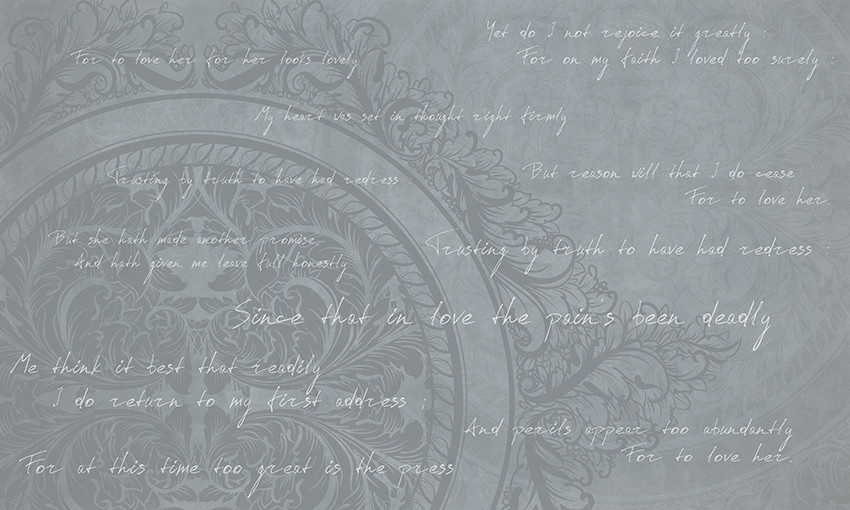 Yet do I not rejoice it greatly :
For on my faith I loved too surely :
For to love her for her looks lovely
My heart was set in thought right firmly
Trusting by truth to have had redress :
But reason will that I do cease
For to love her.
But she hath made another promise
And hath given me leave full honestly
Trusting by truth to have had redress :
Since that in love the pains been deadly
Me think it best that readily
I do return to my first address ;
And perils appear too abundantly
For to love her.
For at this time too great is the press